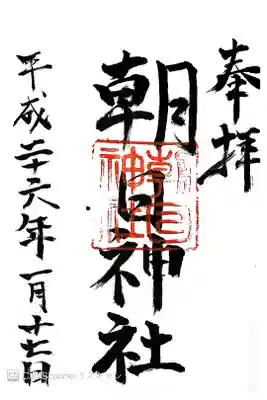 奉拝
朝日神社
平成二十六年一月十七日
CamScannerでスキャン